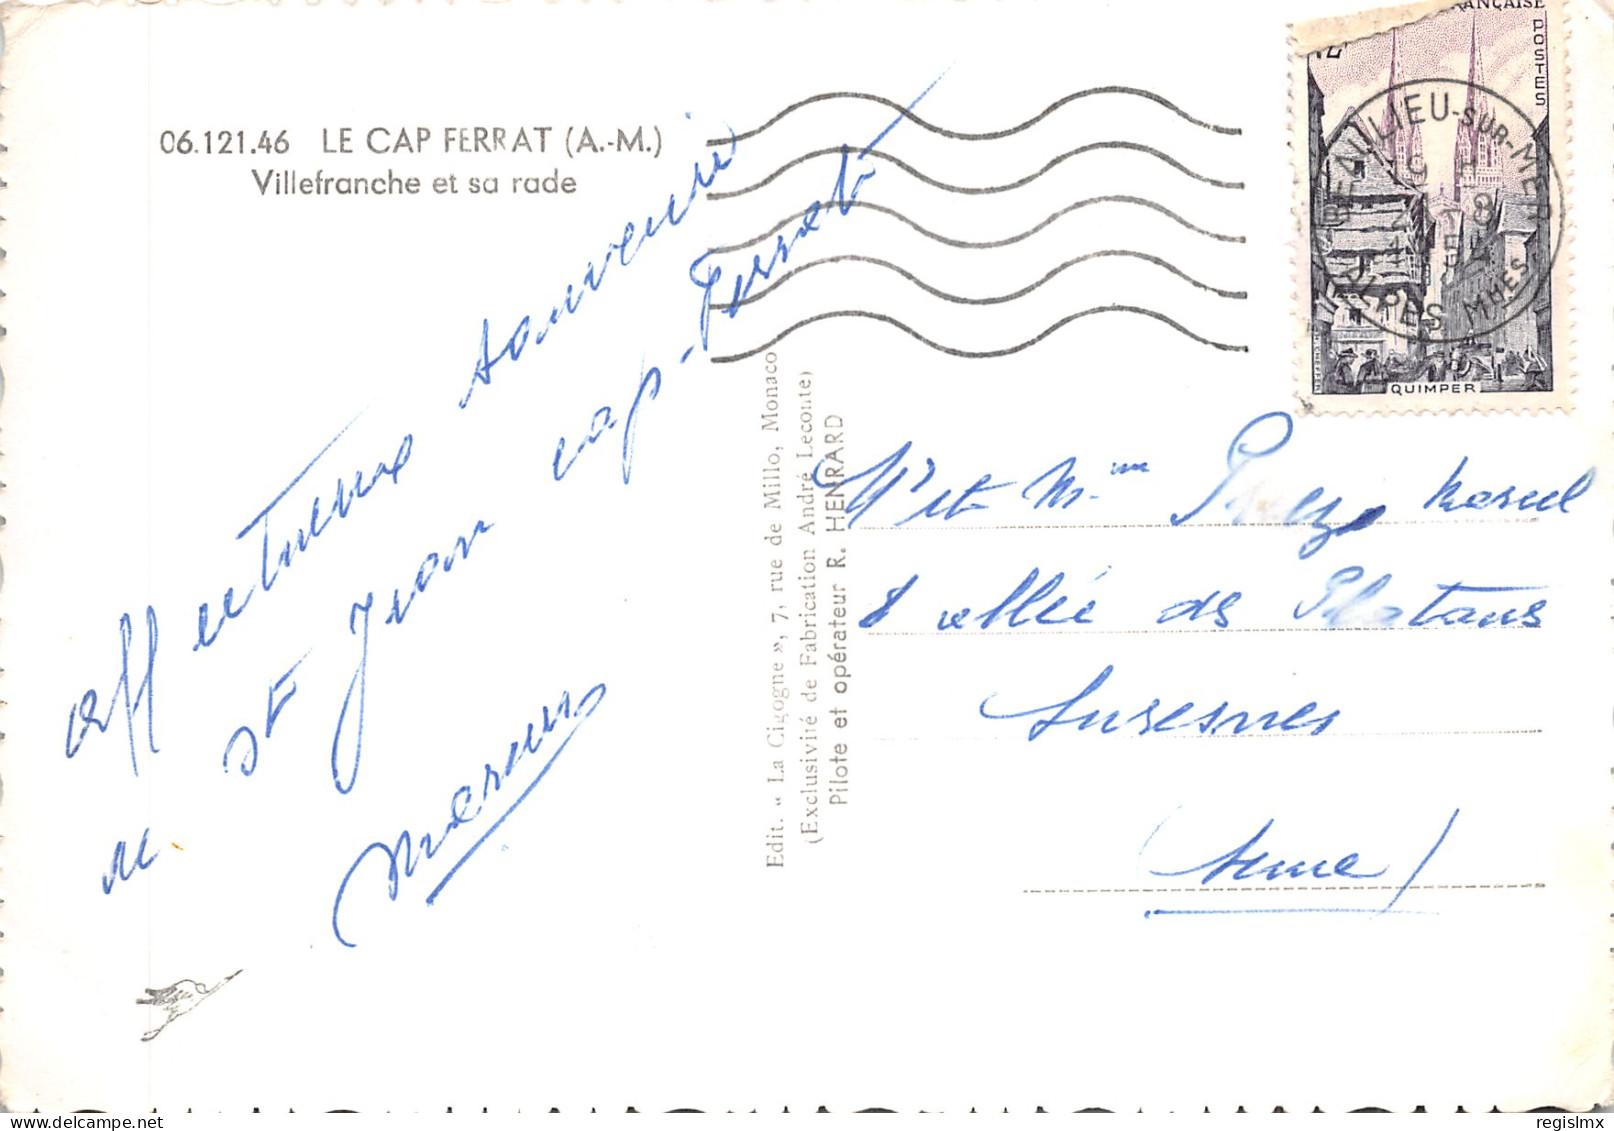 06.121.46 LE CAP FERRAT (A.-M.)
Villefranche et sa rade
affectueux souvenir
de St Jean cap-Ferrat
Edit. « La Cigogne », 7, rue de Millo, Monaco
(Exclusivité de Fabrication André Leconte)
Pilote et opérateur R. HENRARD
FRANÇAISE
POSTES
QUIMPER
BEAULIEU-SUR-MER
ALPES MMES
19 H
Mr et Mme Marcel
8 allée des Platanes
Suresnes
(Seine)
delcampe.net
regislmx